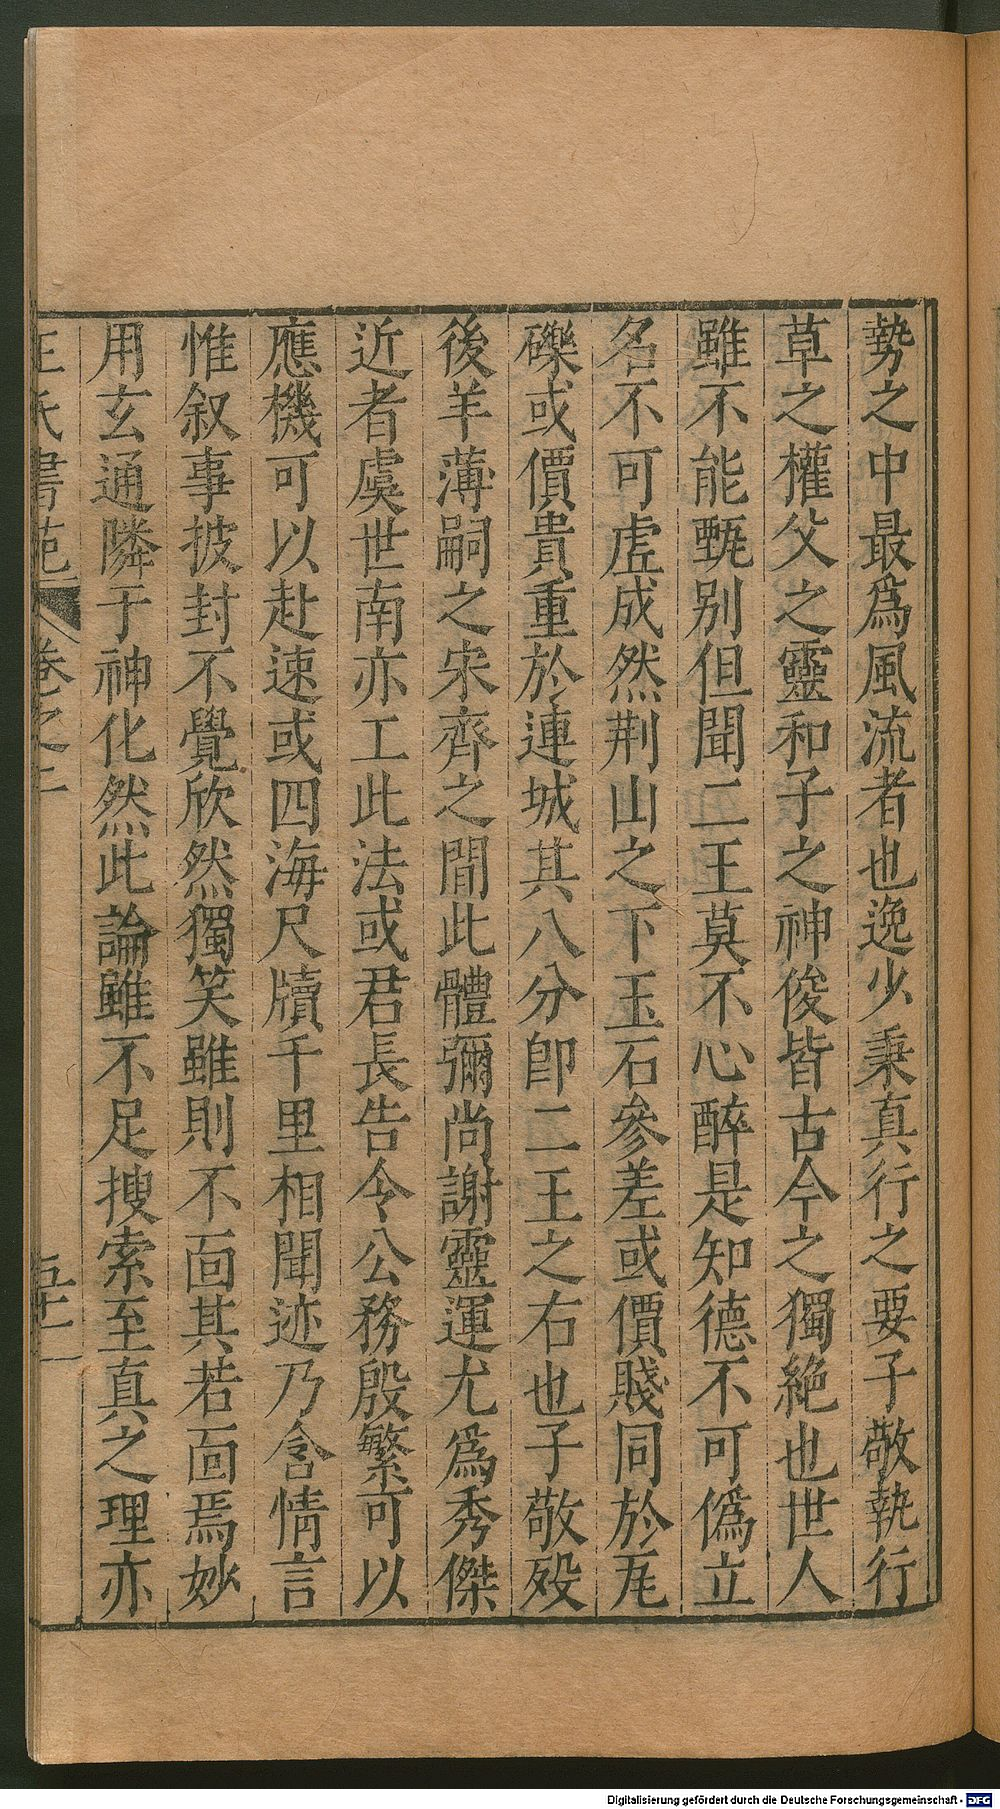 勢之中最爲風流者也逸少秉真行之要子敬執行
草之權父之靈和子之神俊皆古今之獨絶也世人
雖不能甄别但聞二王莫不心醉是知德不可僞立
名不可虚成然荆山之下玉石參差或價賤同於瓦
礫或價貴重於連城其八分即二王之右也子敬殁
後羊薄嗣之宋齊之間此體彌尚謝靈運尤爲秀傑
近者虞世南亦工此法或君長告令公務殷繁可以
應機可以赴速或四海尺牘千里相聞迹乃含情言
惟叙事披封不覺欣然獨笑雖則不面其若面焉妙
用玄通隣于神化然此論雖不足搜索至真之理亦
王氏書苑 卷之二
Digitalisierung gefördert durch die Deutsche Forschungsgemeinschaft - DFG